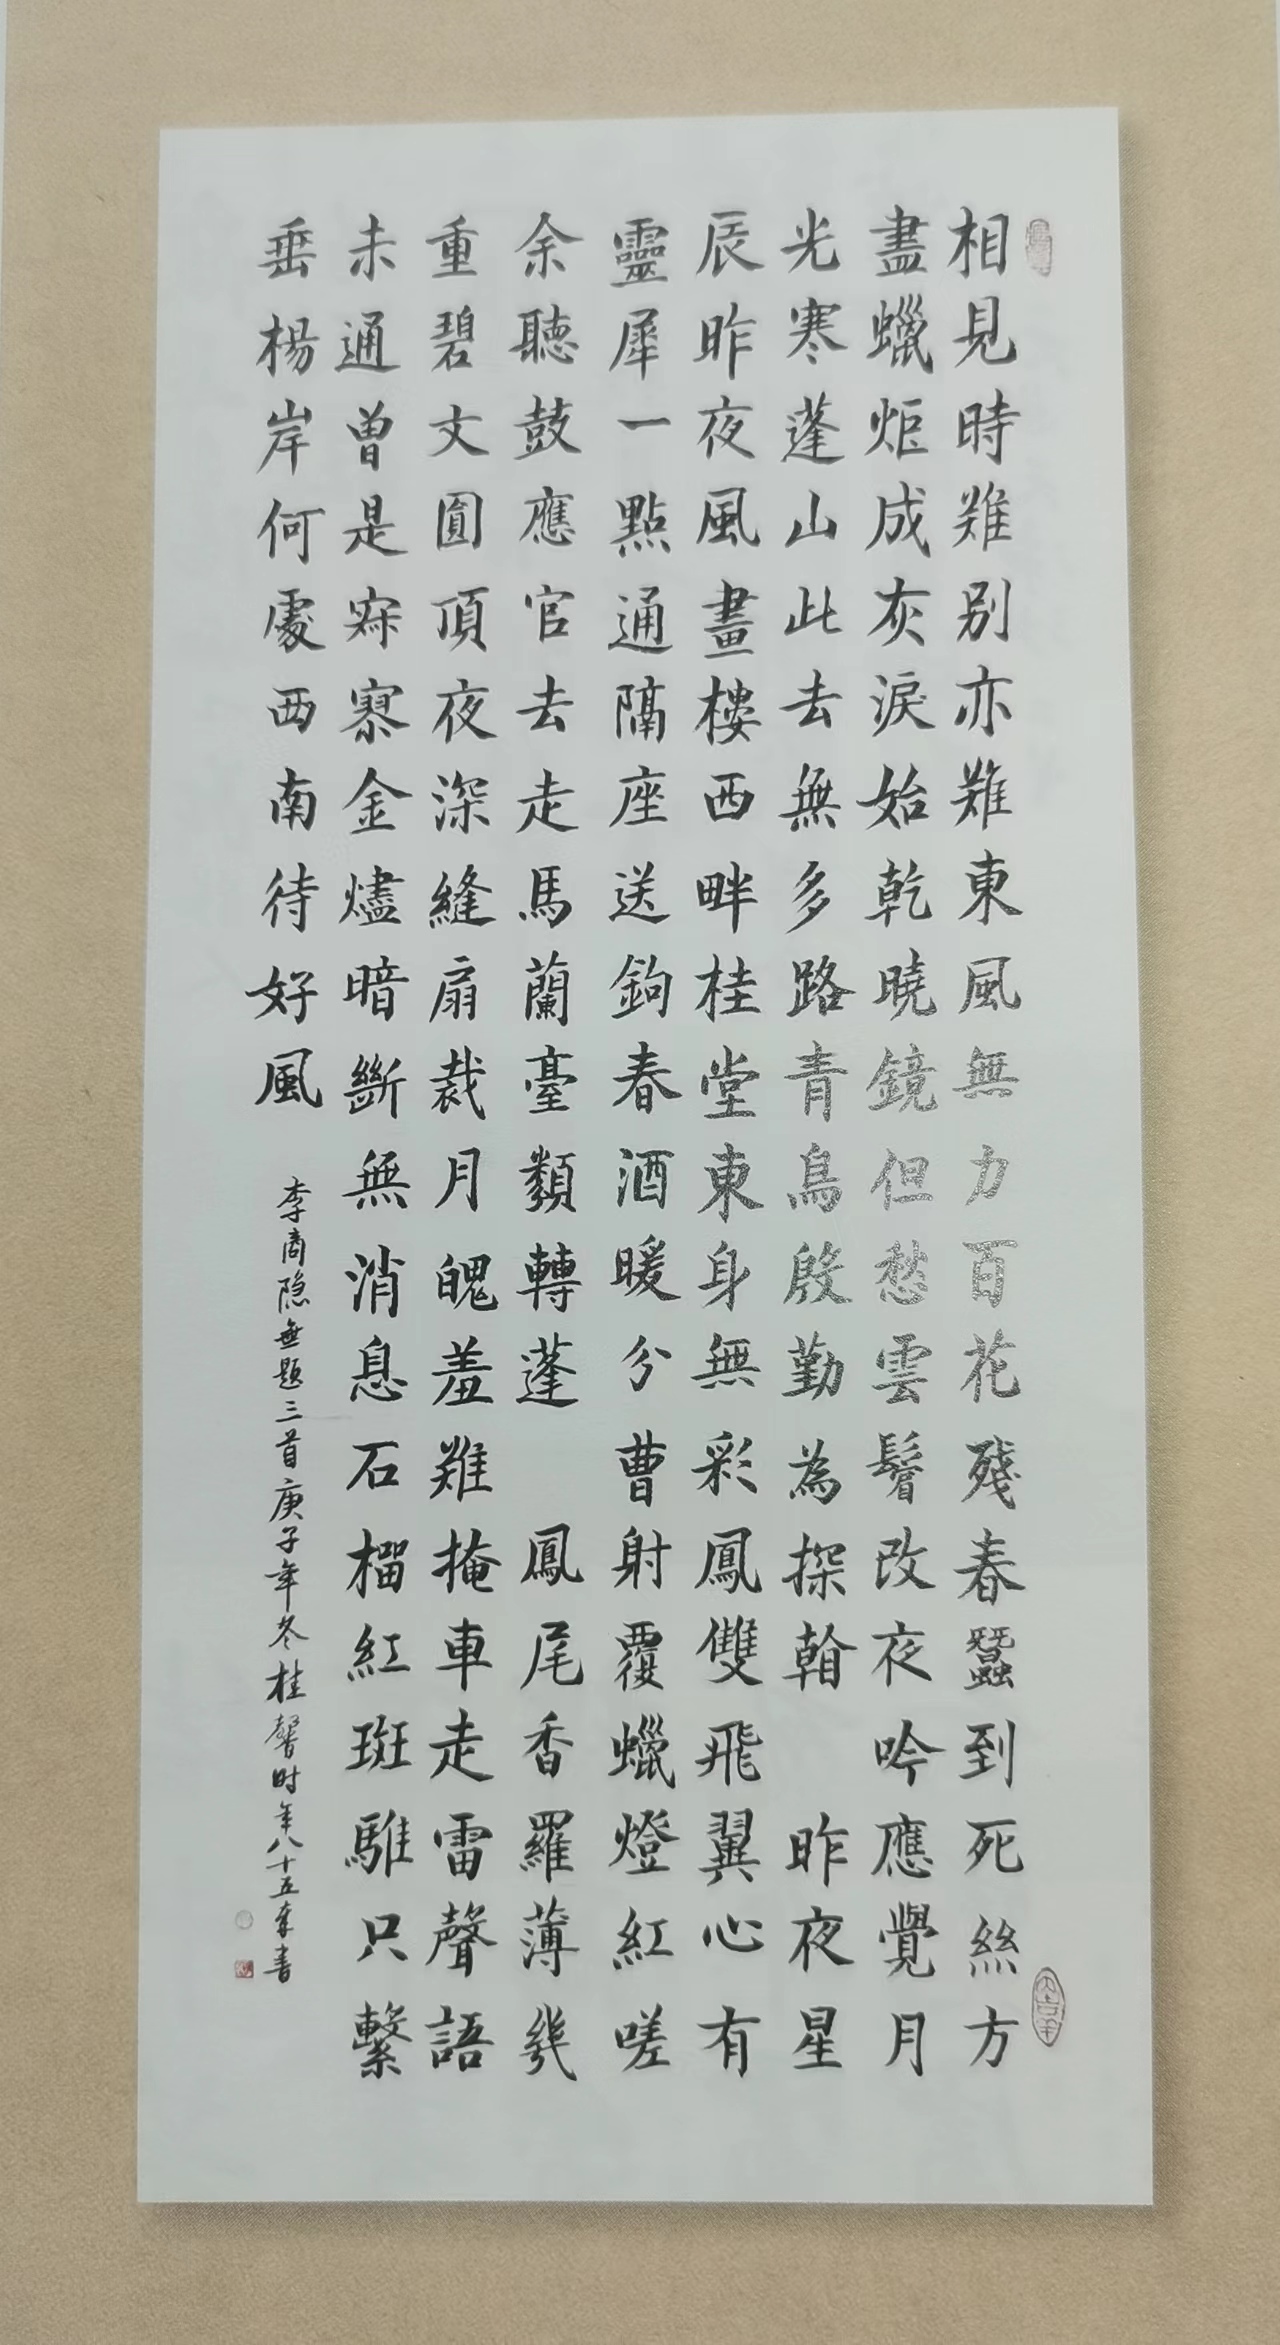 相見時難別亦難東風無力百花殘春蠶到死絲方
盡蠟炬成灰淚始乾曉鏡但愁雲鬢改夜吟應覺月
光寒蓬山此去無多路青鳥殷勤為探翰 昨夜星
辰昨夜風畫樓西畔桂堂東身無彩鳳雙飛翼心有
靈犀一點通隔座送鉤春酒暖分曹射覆蠟燈紅嗟
余聽鼓應官去走馬蘭臺類轉蓬 鳳尾香羅薄幾
重碧文圓頂夜深縫扇裁月魄羞難掩車走雷聲語
未通曾是寂寥金燼暗斷無消息石榴紅斑騅只繫
垂楊岸何處西南待好風
李商隐無題三首庚子年冬桂馨时年八十五享書